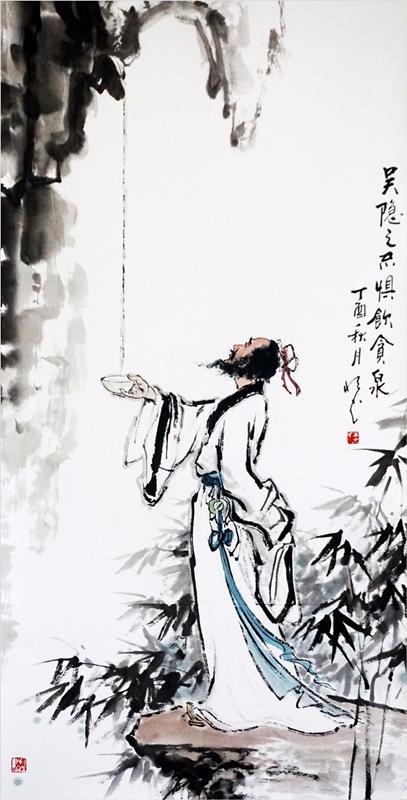 吴隐之不惧飲貪泉
丁酉秋月